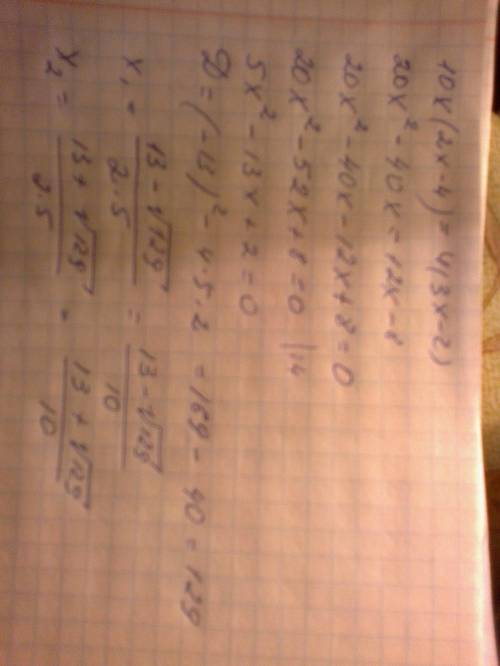 10x(2x-4)=4(3x-2)
20x²-40x=12x-8
20x²-40x-12x+8=0
20x²-52x+8=0 |:4
5x²-13x+2=0
D=(-13)²-4·5·2=169-40=129
x₁ = (13-√129)/(2·5) = (13-√129)/10
x₂ = (13+√129)/(2·5) = (13+√129)/10